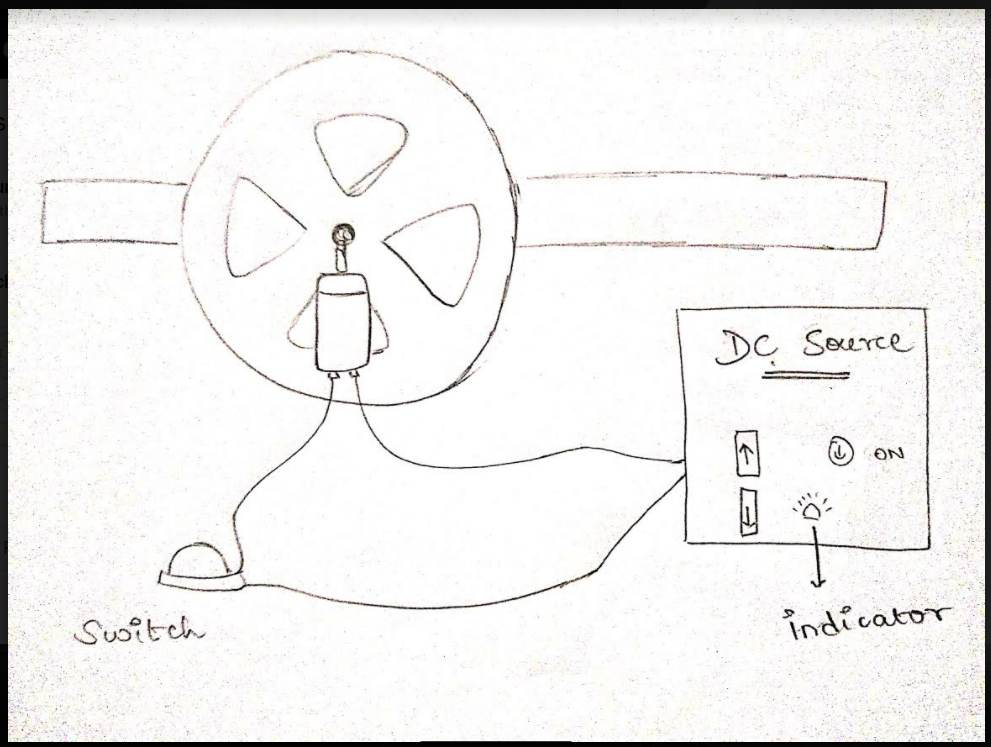 DC Source
ON
Switch
indicator